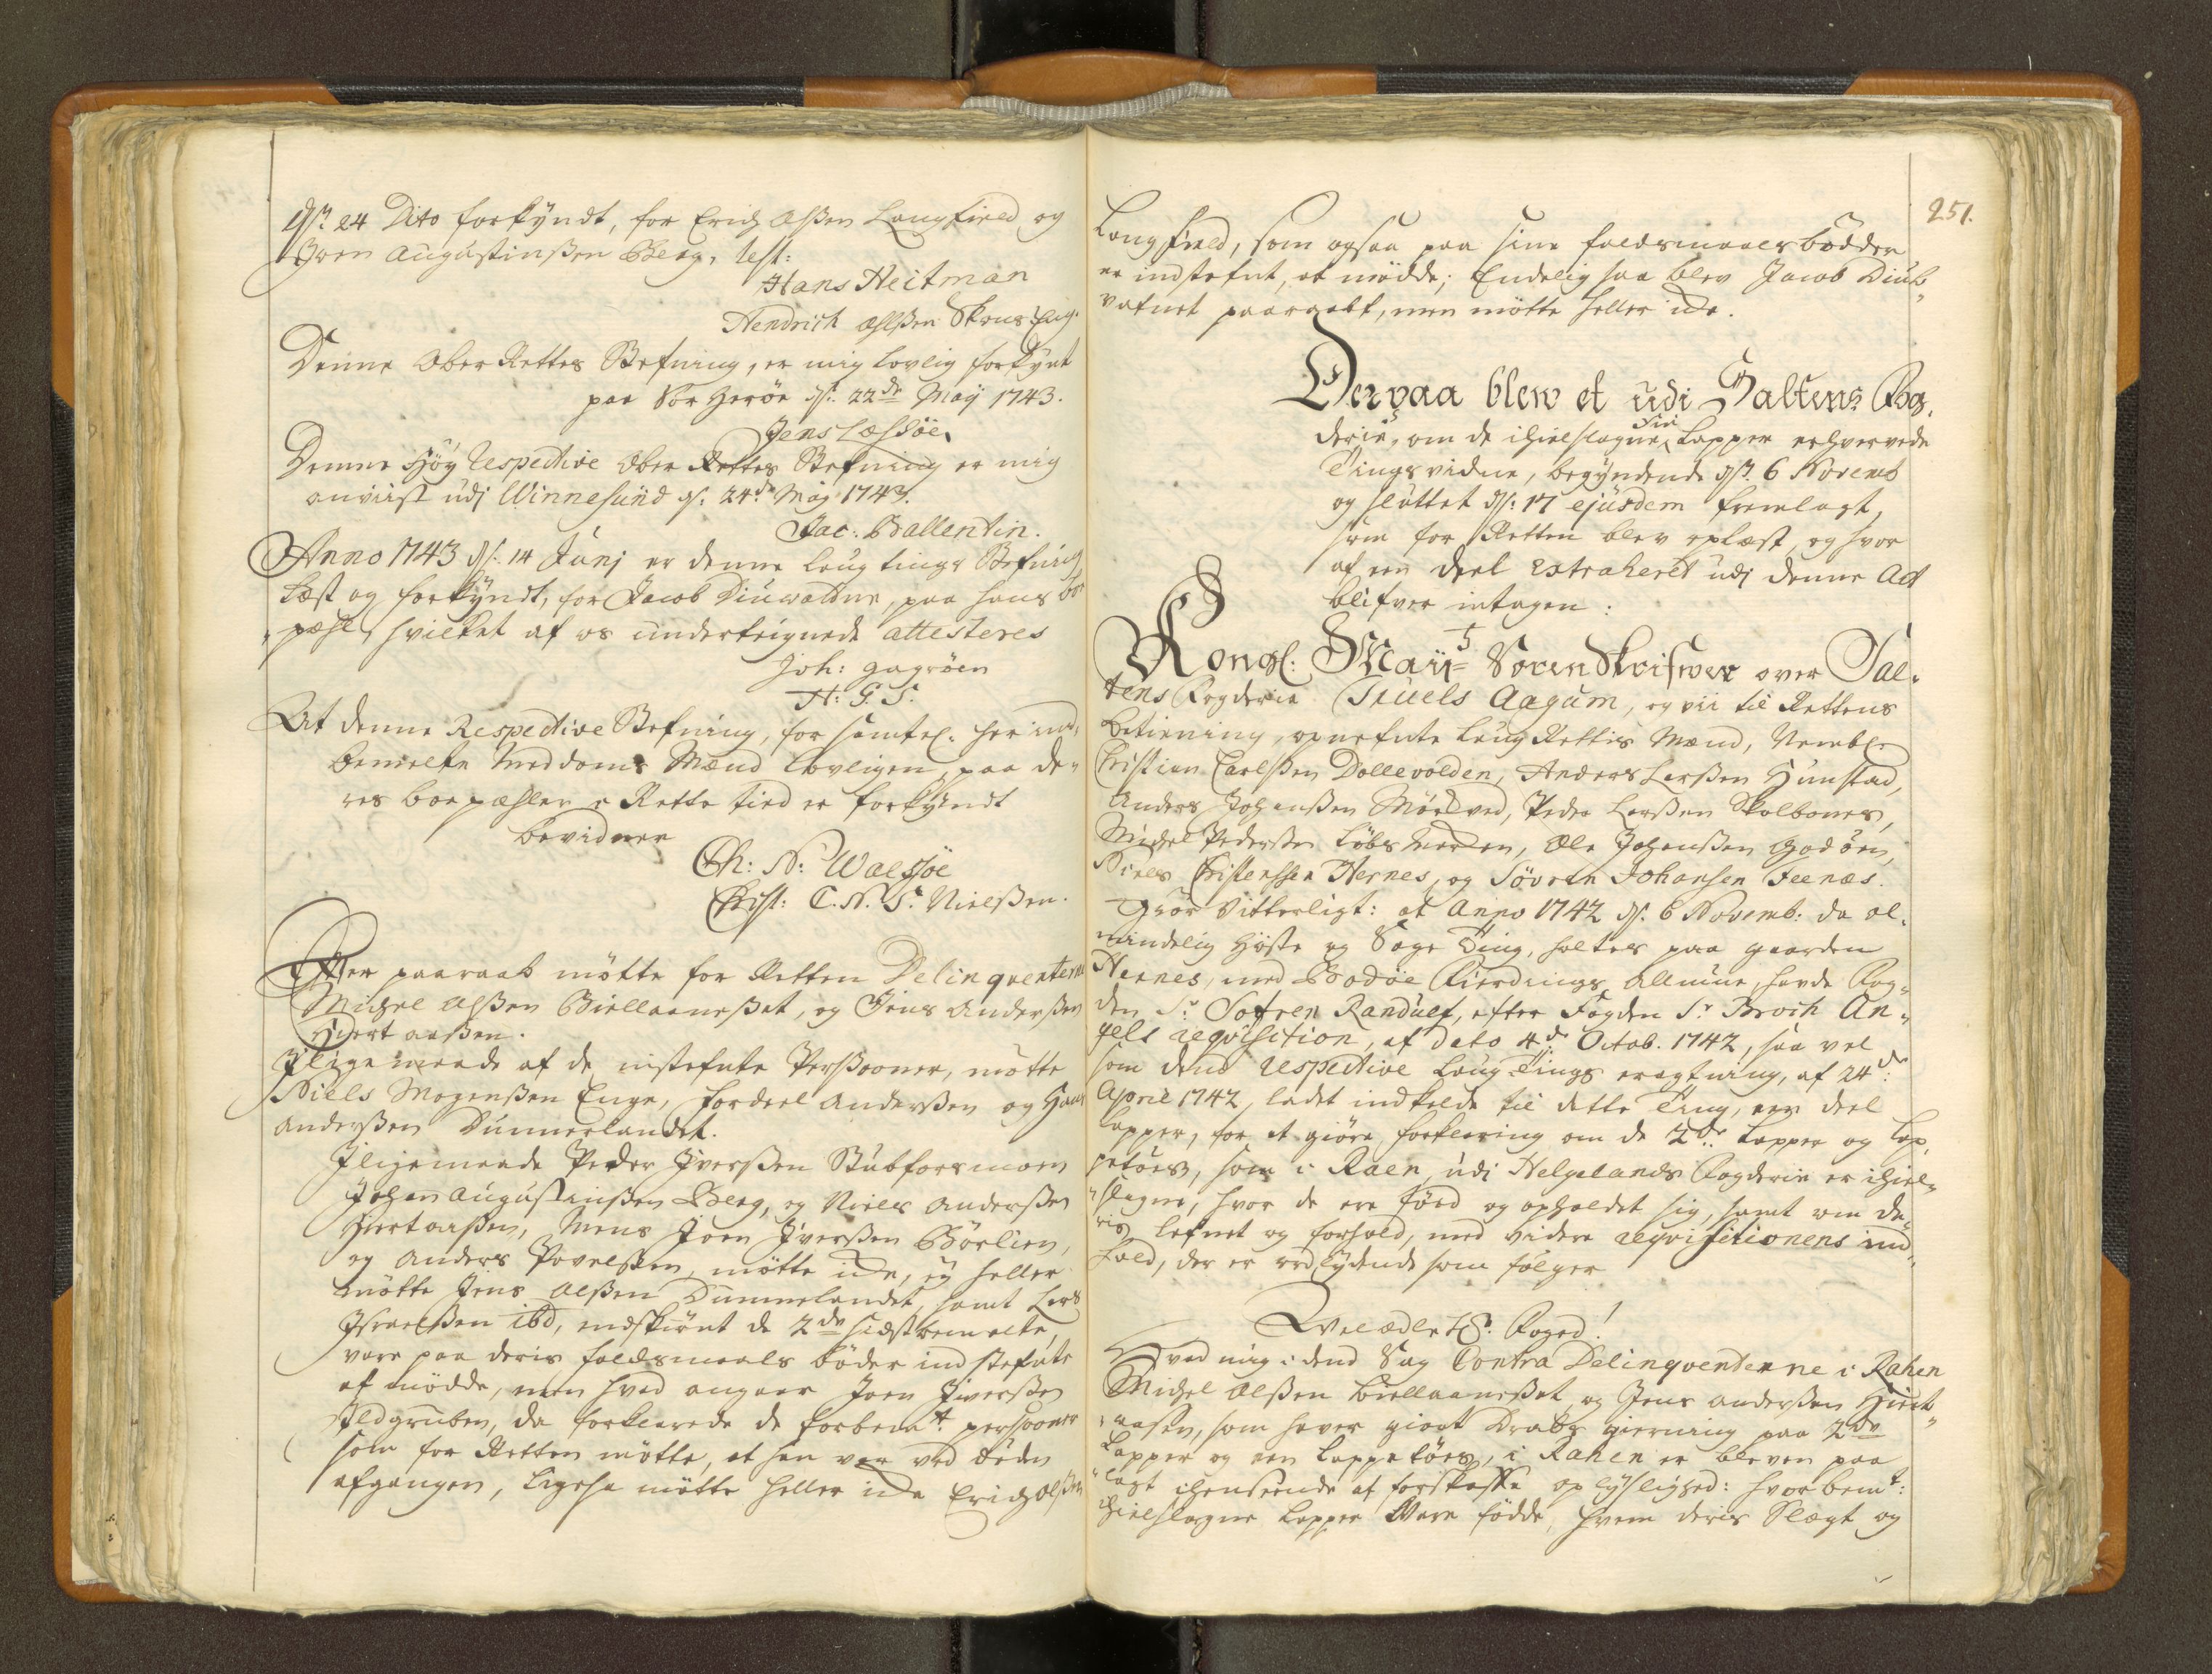 d: 24 Dito forkyndt, for Erich Olßen Langfield og
Joen Augustinßen Berg, test:
Hans Heitman
Hendrich Olßen
Denne Ober Rettes Stefning, er mig lovlig forkynt
paa Sør Herøe d: 22de Maÿ 1743.
Jens Læssöe
Denne Höÿ Respective Ober Rettes Stefning er mig
anviist udj Winnesund d: 24de Maÿ 1743.
Jac: Ballentin.
Anno 1743 d: 14 Junj er denne Laugtings Stefning
læst og forkÿndt, for Jacob, paa hans bo¬
"pæhl, hvilket af os underteignede attesteres
Joh: Gagröen
H: G. S.
At denne Respective Stefning, for samtl: her ind¬
bemelte Meddoms Mænd lovligen, paa de¬
res boepæhler i Rette tied er forkÿndt
bevidner
Ch: N: Walssöe
Christ: C. N. S. Nielßen.
Efter paaraab mötte for Retten Delinqventerne
Michel Olßen Biellaaneßet, og Jens Anderßen
Hiortaaßen.
Jligemaade af de instefnte Perßooner, mötte
Niels Mogenßen Enge, Fordeel Anderßen og Hans
Anderßen Dunnerlandet.
Jligemaade Peder Jverßen Stubforsmoen
Johan Augustinßen Berg, og Niels Anderßen
Hiortaaßen, Mens Joen Jverßen Börlien,
og Anders Povelßen, mötte icke, eÿ heller
mötte Jens Olßen Dunnerlandet, samt Lars
Jsraelßen ibd, endskiönt de 2de sidstbemelte,
vare paa deris faldsmaals böder indstefnte
at mödde, men hvad angaar Joen Jverßen
Ildgruben, da forklarede de forbemt: persooner
som for Retten mötte, at han var ved döden
afgangen, ligesaa mötte heller icke Erich Olßen
251.
Langfield, som ogsaa paa sine faldsmaals bödder
er indstefnt, at mödde; Endelig saa blev Jacob
vatnet paaraabt, men mötte heller icke.
Derpaa blew et udi Saltens Fog¬
derie, om de ihielslagne Lapper erhvervede
Tingsvidne, begÿndende d: 6 Novemb
og sluttet d: 17 ejusdem fremlagt,
som for Retten blev oplæst, og hvor
af een deel extraheret udj denne Act
blifver intagen:
Kongl: Maÿts Sorenskrifwer over Sal¬
tens Fogderie Truels Aagum, og vii til Rettens
betiening, opnefnte Laug Rettis Mænd, Nembl:
Christian Carlßen Dollevolden, Anders Larßen Hunstad,
Anders Johanßen Mörkved, Peder Larßen Skolbones,
Michel Pederßen Löbs, Ole Johanßen Godöen,
Niels Christenssen Hernes, og Sövren Johansen Feenæs.
Giör Vitterligt: at Anno 1742 d: 6 Novemb: da al¬
mindelig Höste og Sage Ting, holtes paa gaarden
Hernes, med Bodöe Fierdings Allmue, havde Fog¬
den Sr Sofren Randulf, efter Fogden Sr Broch An¬
gels reqvisition, af dato 4de Octob. 1742, saa vel
som dend Respective Laug Tings eragtning, af 24de
April 1742, ladet indkalde til dette Ting, een deel
Lapper, for at giöre forklaring om de 2de Lapper og Lap¬
petöes, som i Raen udi Helgelands Fogderie er ihiel¬
"slagne, hvor de ere föed og opholdet sig, samt om de¬
"ris lefnet og forhold, med videre reqvisitionens ind¬
hold, der er ord lÿdende som fölger
Velædle Hr: Foged!
Hvad mig i dend Sag Contra Delinqventerne i Rahen
Michel Olßen Biellaaneßet og Jens Anderßen Hiort¬
"aaßen, som haver giort Drabs gierning paa 2de
Lapper og een Lappetöes, i Rahen er bleven paa
"lagt ihenseende at forskaffe oplÿslighed: hvor bemt:
ihielslagne Lapper Vare födde, hvem deris Slægt og